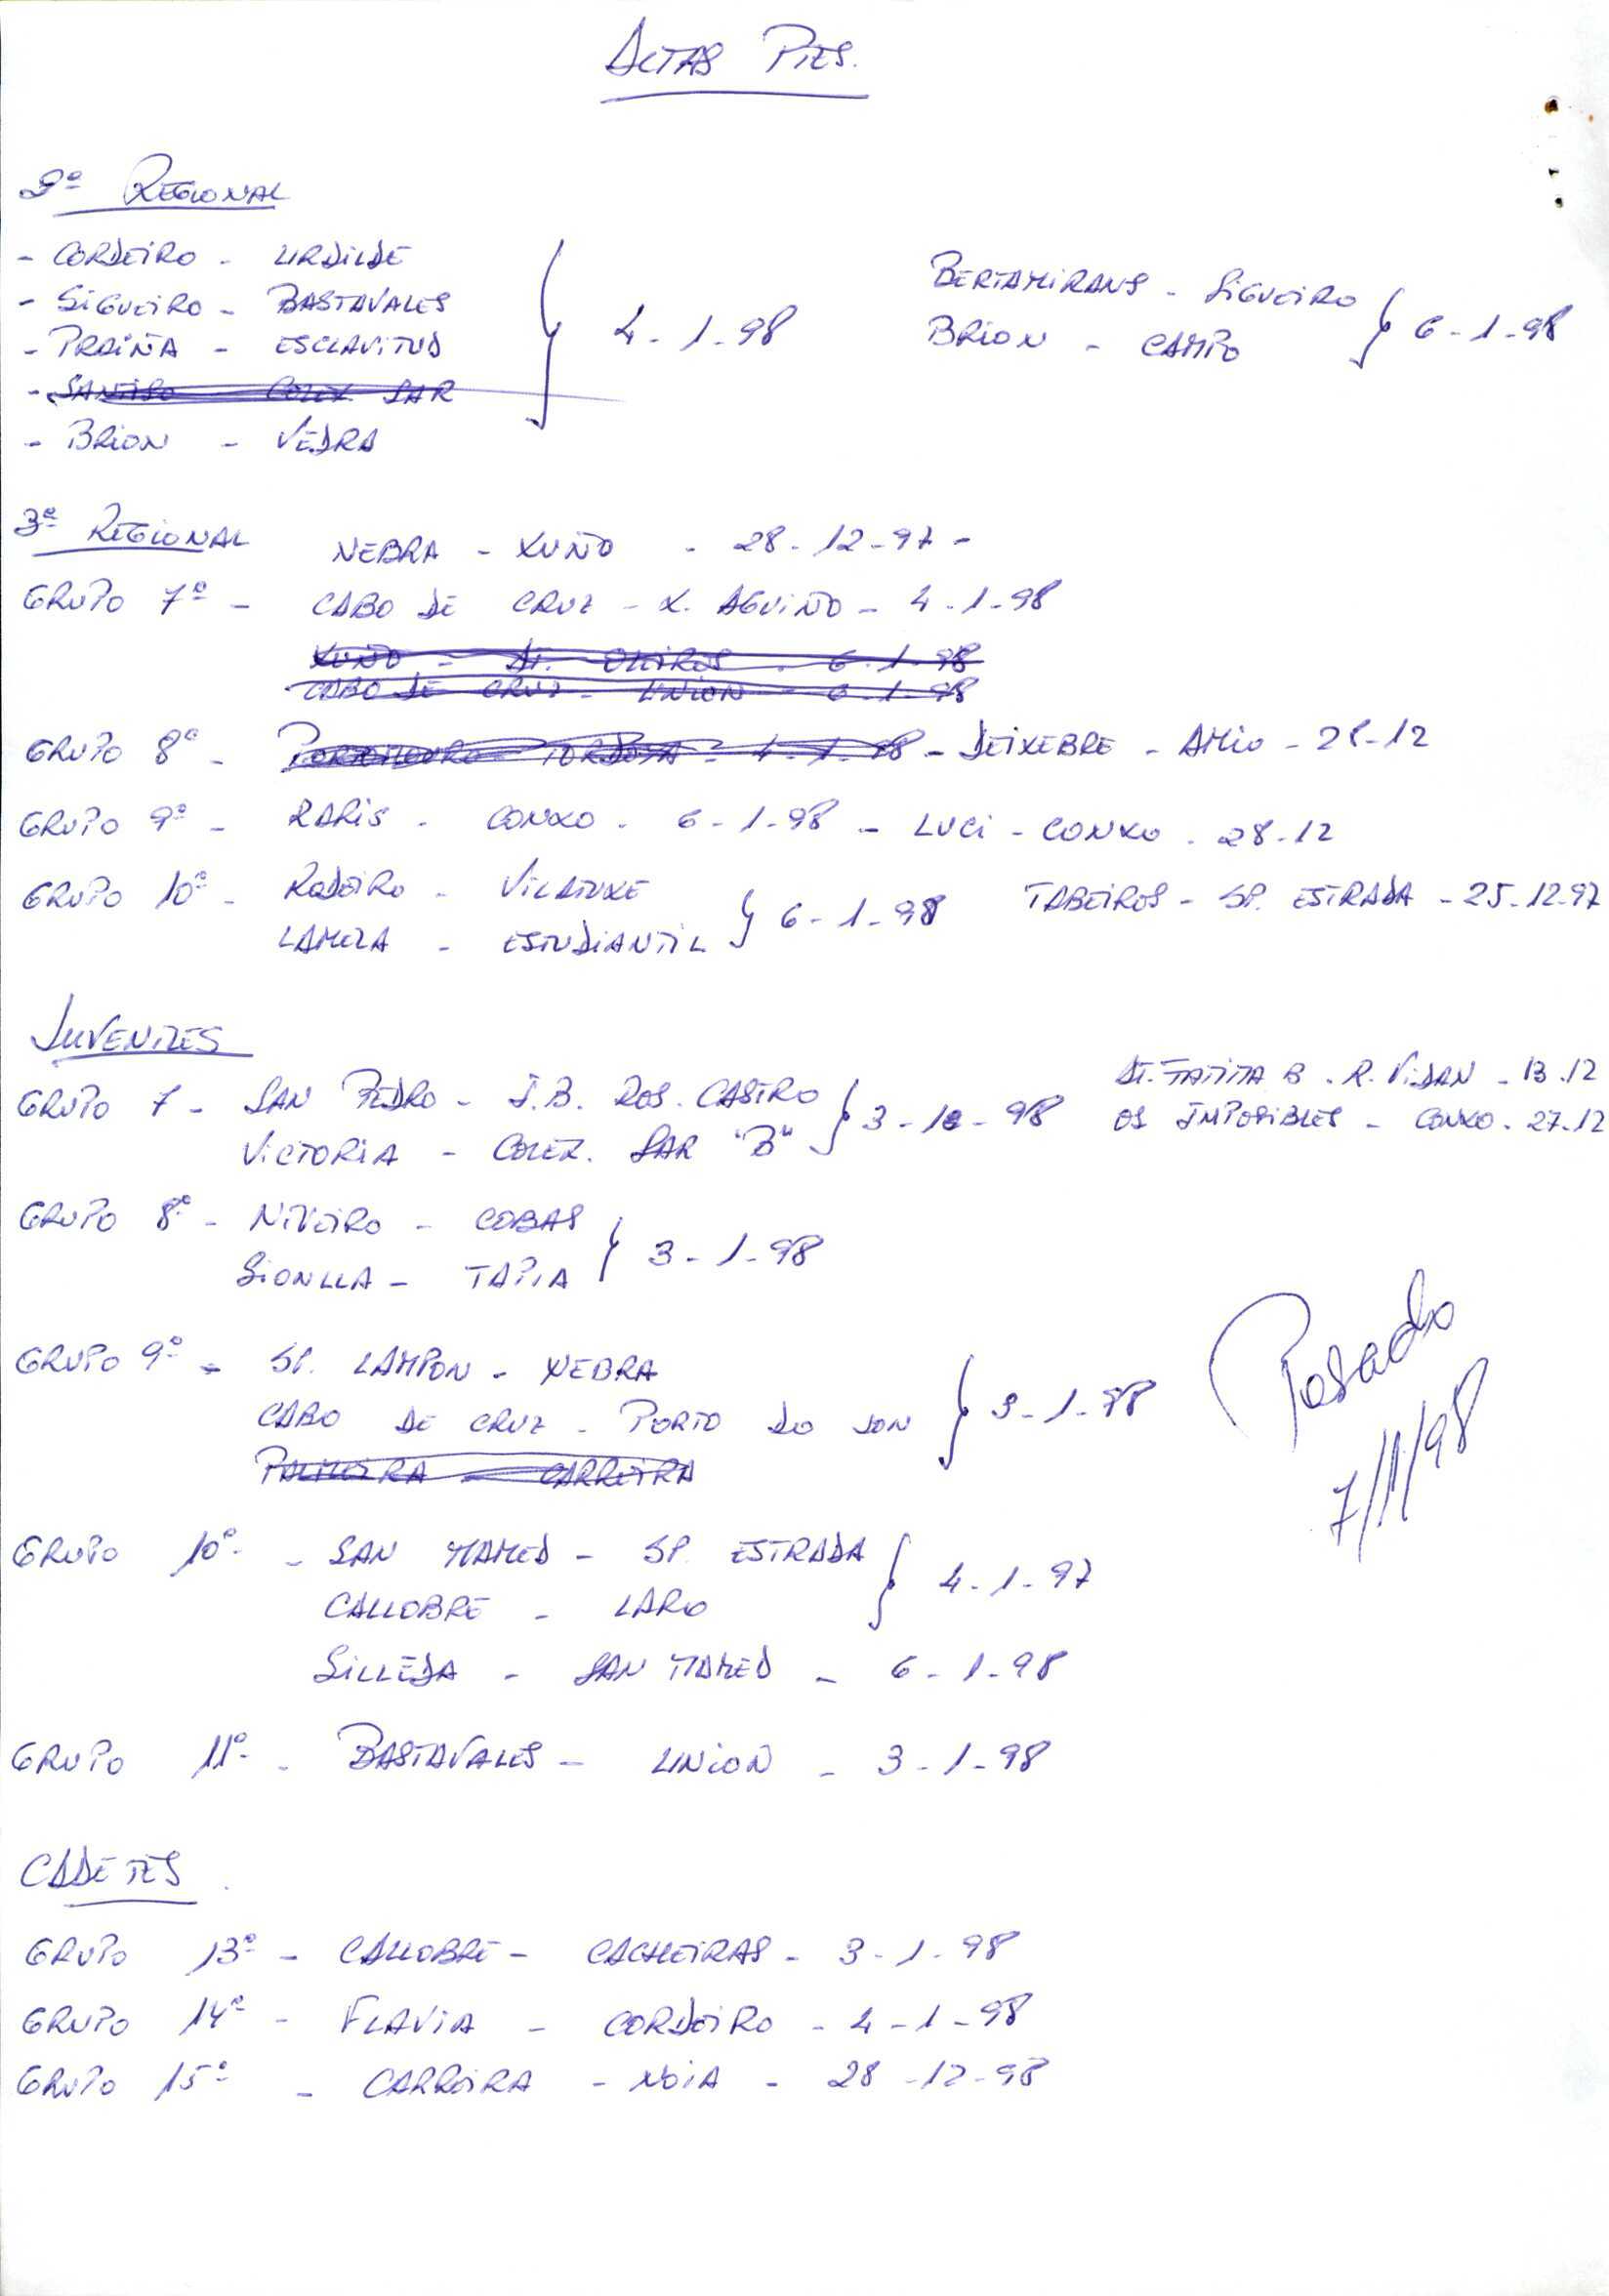 ACTAS PTES.
2ª REGIONAL
- CORDEIRO - URDILDE
- SIGUEIRO - BASTAVALES
- PRAIÑA - ESCLAVITUD
4-1-98
- SANTISO COLEX. SAR
- BRION - VEDRA
BERTAMIRANS - SIGUEIRO
BRION - CAMPO
6-1-98
3ª REGIONAL NEBRA - XUÑO - 28-12-97-
GRUPO 7º - CABO DE CRUZ - X. AGUIÑO - 4-1-98
XUÑO - AT. OLEIROS - 6-1-98
CABO DE CRUZ - UNION - 6-1-98
GRUPO 8º - PORTOMOURO - TORDOYA - 4-1-98 - DEIXEBRE - AMIO - 28-12
GRUPO 9º - RARIS - CONXO - 6-1-98 - LUCI - CONXO - 28-12
GRUPO 10º - RODEIRO - VILATUXE
LAMELA - ESTUDIANTIL
6-1-98
TABEIROS - SP. ESTRADA - 25-12-97
JUVENILES
GRUPO 7 - SAN PEDRO - I.B. ROS. CASTRO
VICTORIA - COLEX. SAR "B"
3-10-98
AT. FATIMA B - R. VIDAN - 13.12
OS IMPOSIBLES - CONXO - 27.12
GRUPO 8º - NIVEIRO - COBAS
SIONLLA - TAPIA
3-1-98
GRUPO 9º - SP. LAMPON - NEBRA
CABO DE CRUZ - PORTO DO SON
3-1-98
PALMEIRA - CARREIRA
Pasado
7/1/98
GRUPO 10º - SAN MAMED - SP. ESTRADA
CALLOBRE - LARO
4-1-97
SILLEDA - SAN MAMED - 6-1-98
GRUPO 11º - BASTAVALES - UNION - 3-1-98
CADETES
GRUPO 13º - CALLOBRE - CACHEIRAS - 3-1-98
GRUPO 14º - FLAVIA - CORDEIRO - 4-1-98
GRUPO 15º - CARREIRA - NOIA - 28-12-98